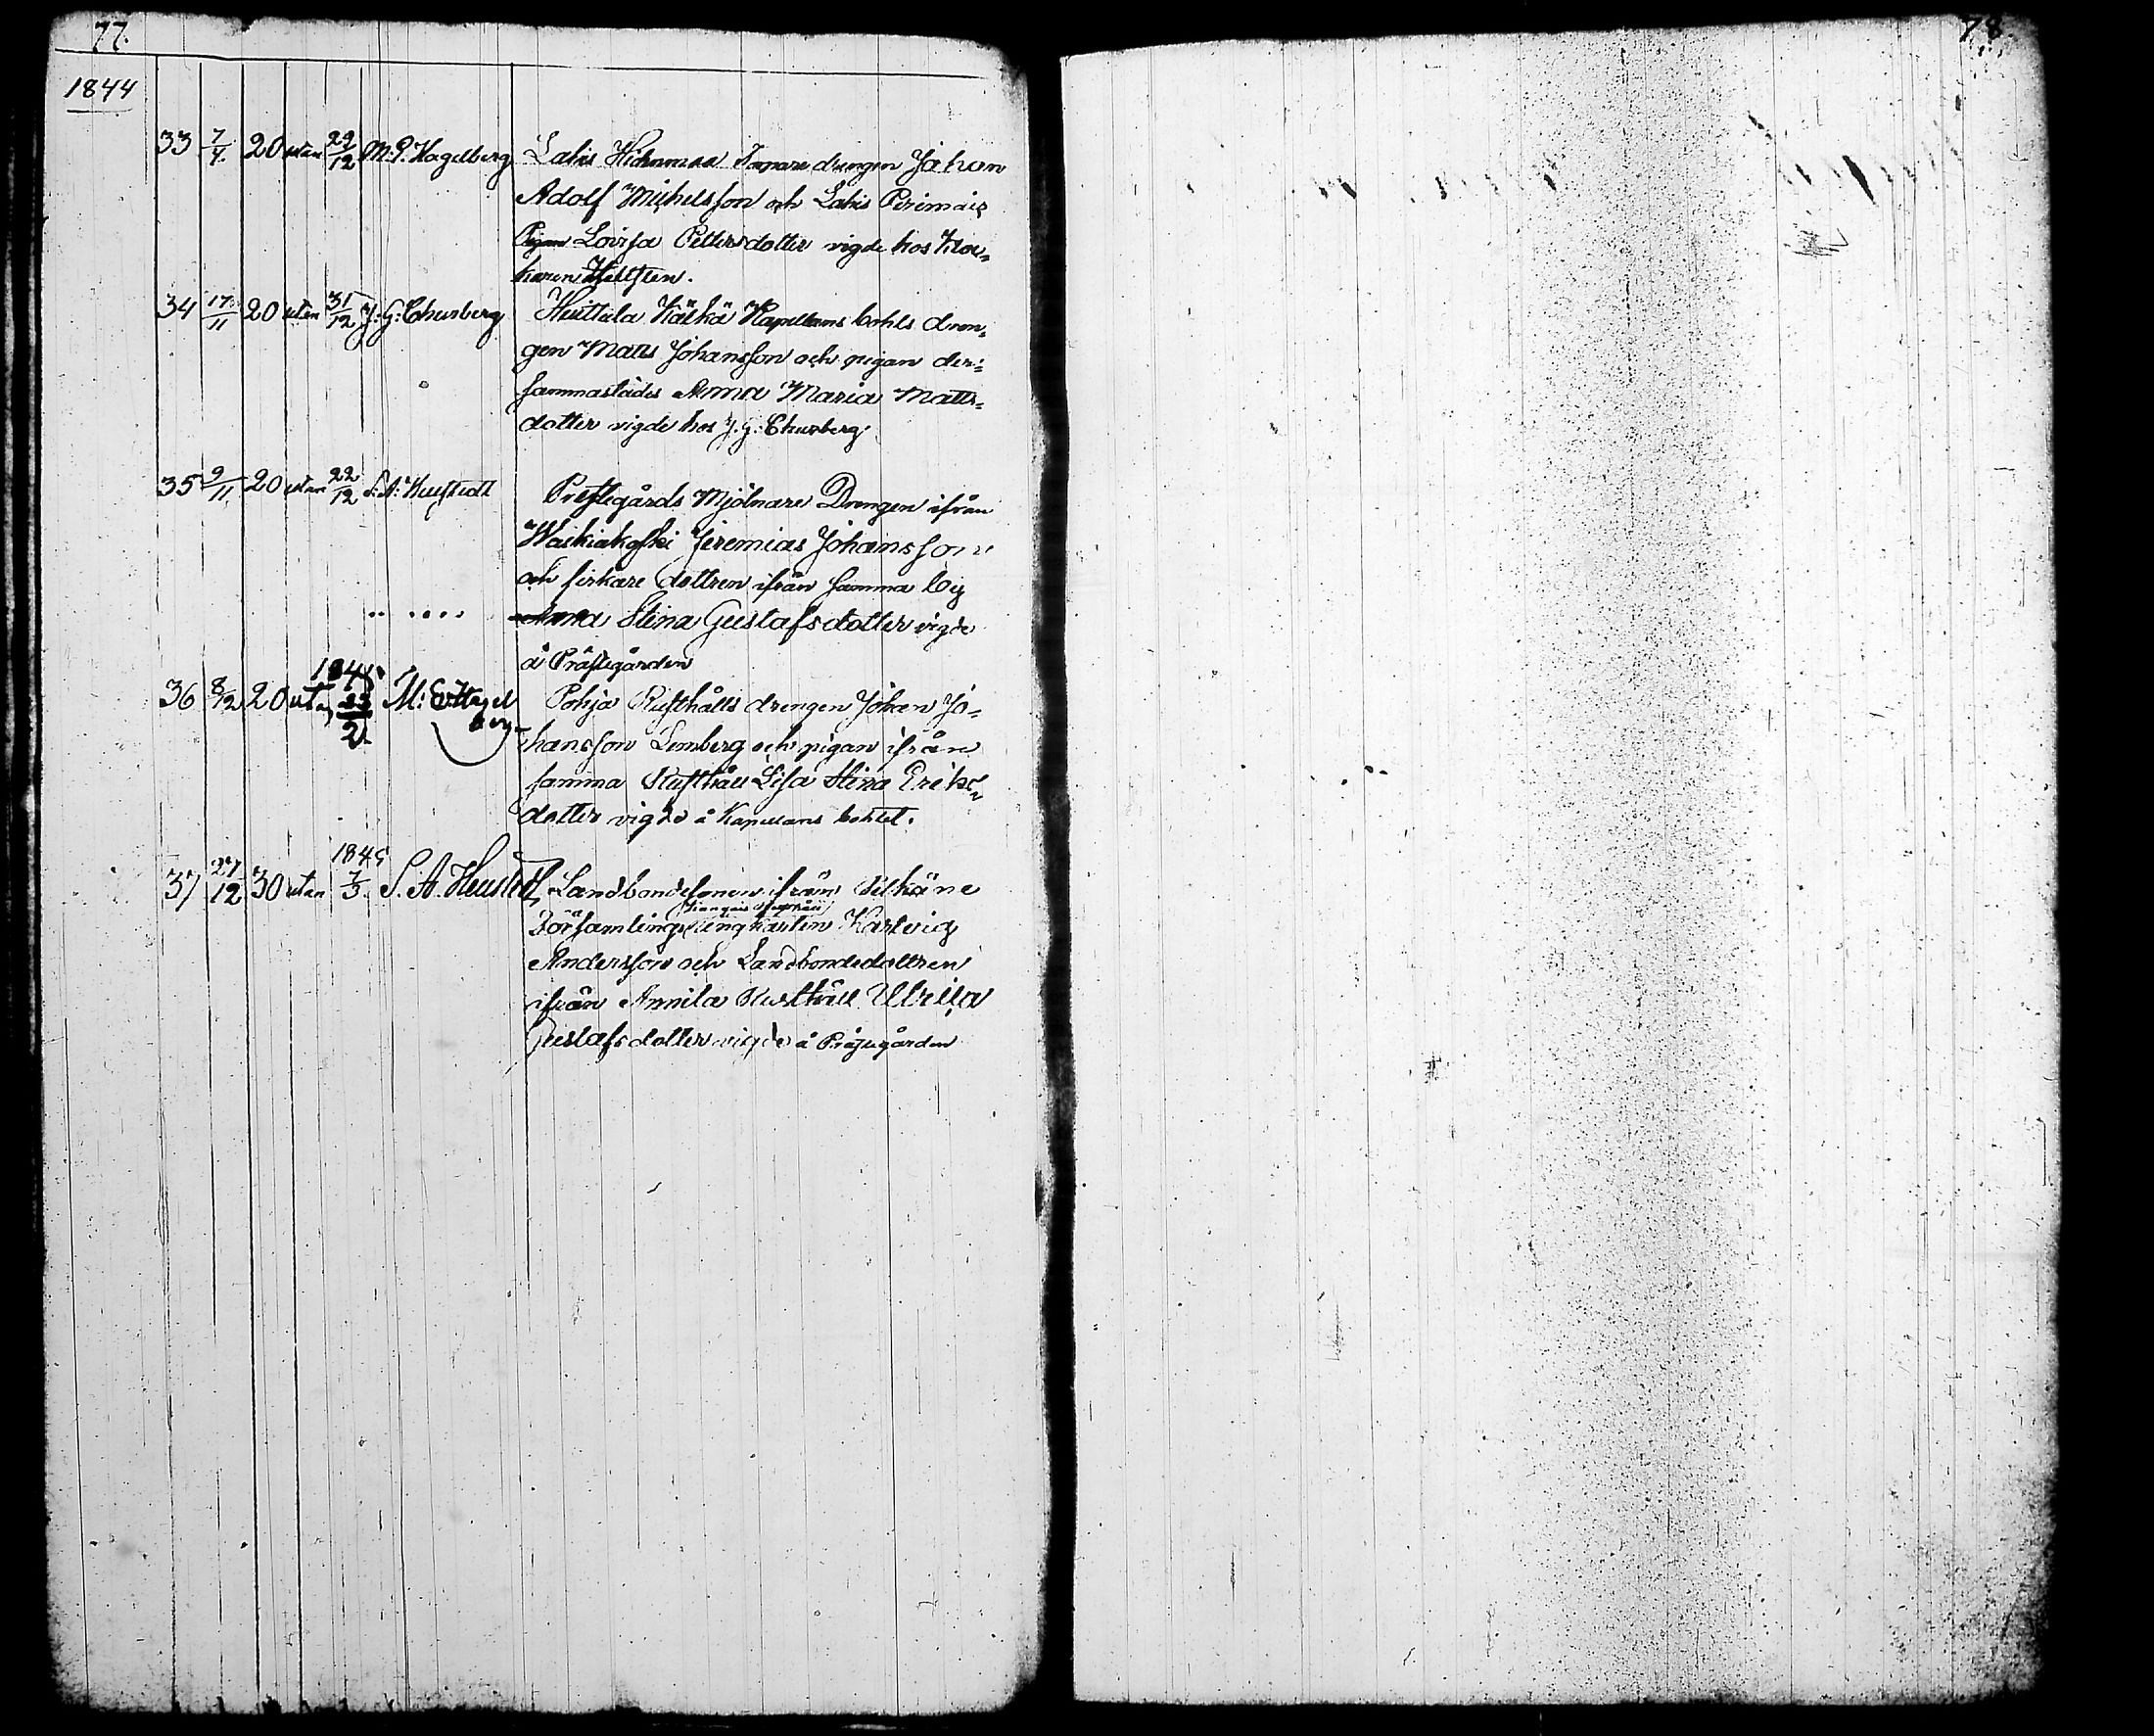 77.
78.
1844
33 7/4. 20 utan 29/12 M. P. Hagelberg Lahis drengen Johan
Adolf Michelsson och Lahis
Pigan Lovisa Pettersdotter vigde hos Kloc=
karen Hellsten.
34 17/11 20 utan 31/12 J. G. Churberg Huittula Käikä Kapellans bohls dren=
gen Matts Johansson och pigan der=
sammastädes Anna Maria Matts=
dotter vigde hos J. G. Churberg
35 9/11 20 utan 22/12 S. A. Heustedt Prestegårds Mjölnare Drengen ifrån
Waikiakoski Jeremias Johansson
och dottren ifrån samma by
Anna Stina Gustafsdotter vigde
å Prästegården
1845
36 8/12 20 utan 23/2. M: E. Hagel
berg Pohja Rusthålls drengen Johan Jo=
hansson Lemberg och pigan ifrån
samma Rusthåll Lisa Stina Eriks=
dotter vigde å Kapellans bohlet.
1845
37 27/12 30 utan 7/3. S. A. Heustedt Landbondesonen ifrån
Församling ungkarlen
Andersson och Landbondedottren
ifrån Annila Rusthåll Ulrica
Gustafsdotter vigde å Prästegården